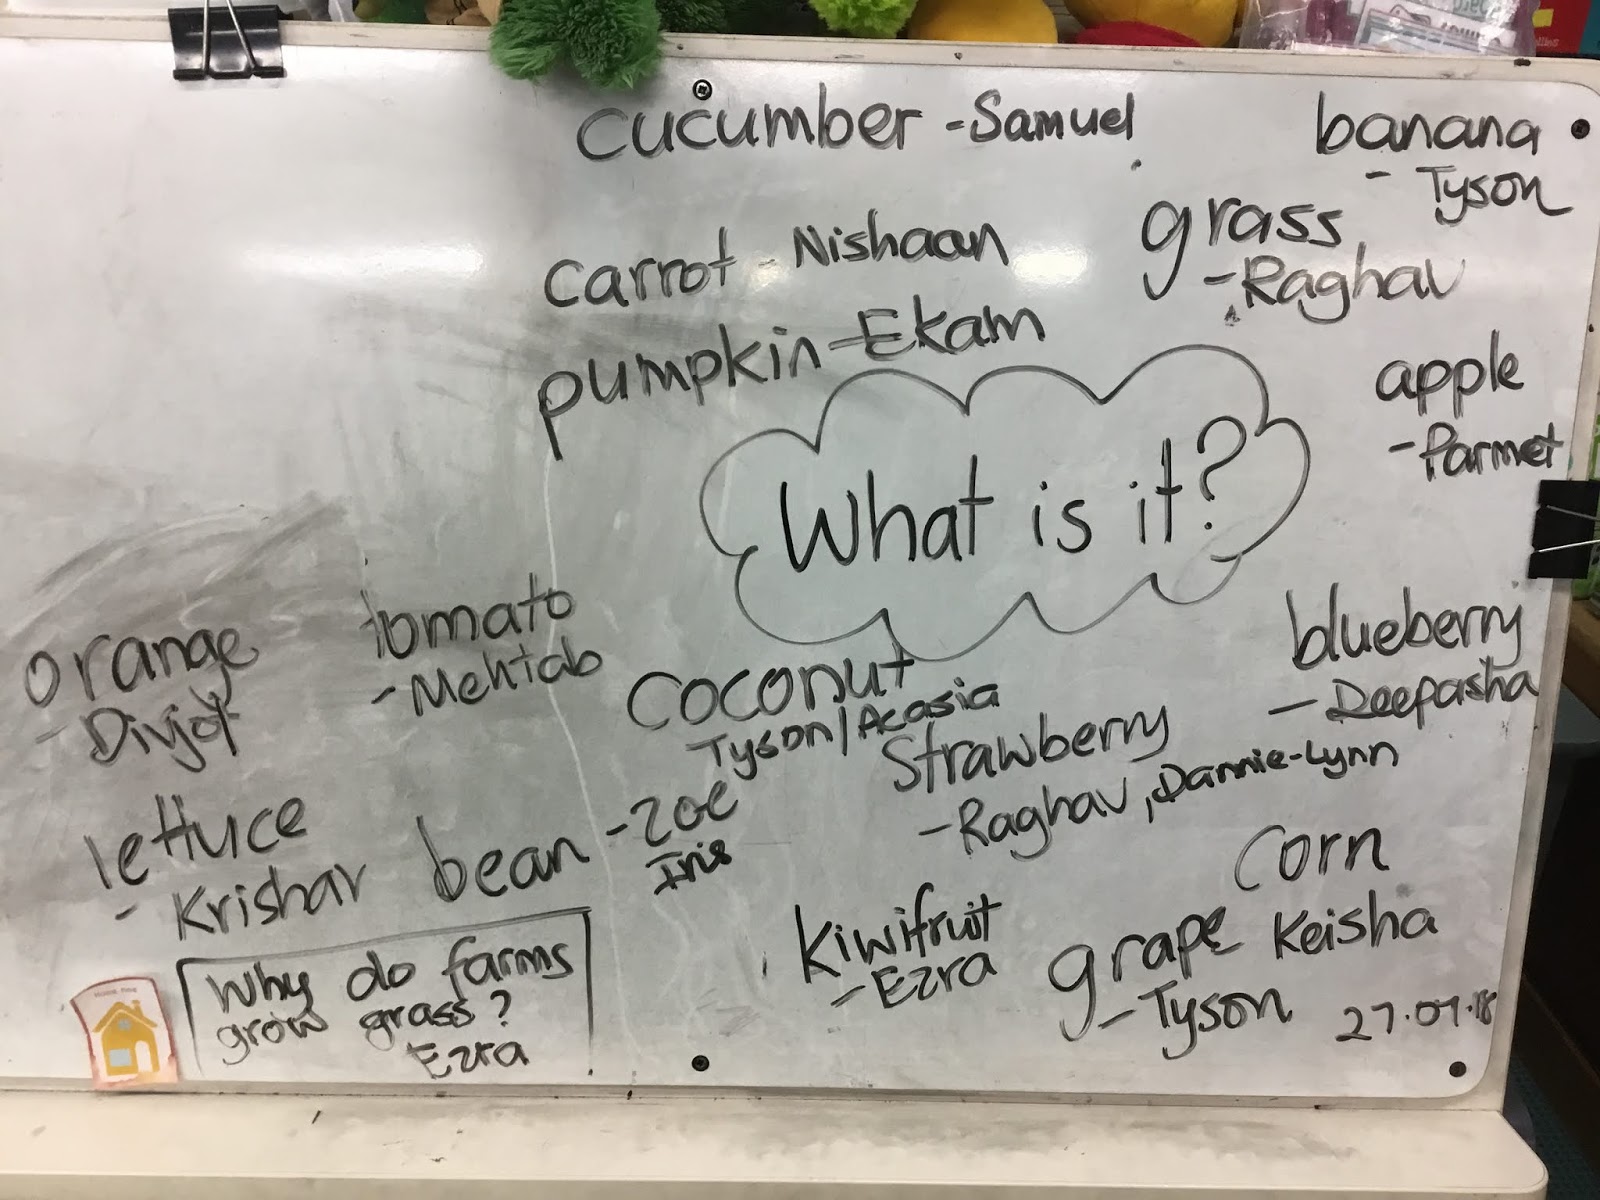 cucumber - Samuel
banana
- Tyson
grass
- Raghav
carrot - Nishaan
pumpkin - Ekam
apple
- Parmet
What is it?
orange
- Divjot
tomato
- Mehtab
coconut
Tyson/Acasia
blueberry
- Deepasha
strawberry
- Raghav, Dannie-Lynn
lettuce
- Krishav
bean - Zoe
Iris
corn
Keisha
kiwifruit
- Ezra
grape
- Tyson
Why do farms
grow grass?
Ezra
27.07.18